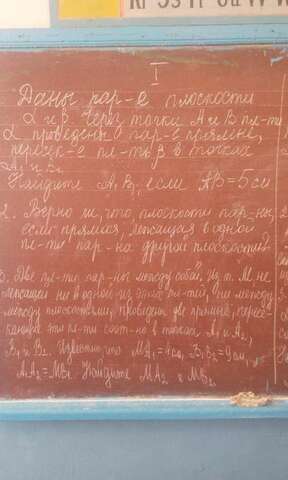 I
Даны пар-е плоскости
α и β. Через точки A и B пл-ти
α проведены пар-е прямые,
пересек-е пл-ть β в точках
A₁ и B₁
Найдите A₁B₁ если AB=5см
2. Верно ли, что плоскости пар-ны,
если прямая, лежащая в одной
пл-ти пар-на другой плоскости?
3. Две пл-ти пар-ны между собой. Из т. M не
лежащей ни в одной из этих пл-тей, ни между
плоскостями, проведены две прямые, пересе-
кающие эти пл-ти соот-но в точках A₁ и A₂,
B₁ и B₂. Известно что MA₁=4см, B₁B₂=9см,
A₁A₂=MB₁. Найдите MA₂ и MB₂.